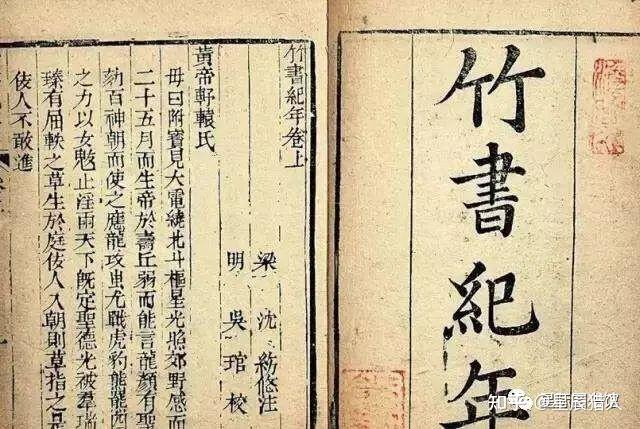 竹書紀年
竹書紀年卷上
梁 沈 注
明 吳 琯 校
黃帝軒轅氏
母曰附寶見大電繞北斗樞星光照郊野感而
二十五月而生帝於壽丘弱而能言龍顏有聖
劾百神朝而使之應龍攻蚩尤戰虎豹熊羆四
之力以女魃止淫雨天下既定聖德光被羣瑞
臻有屈軼之草生於庭佞人入朝則草指之是
佞人不敢進
知乎